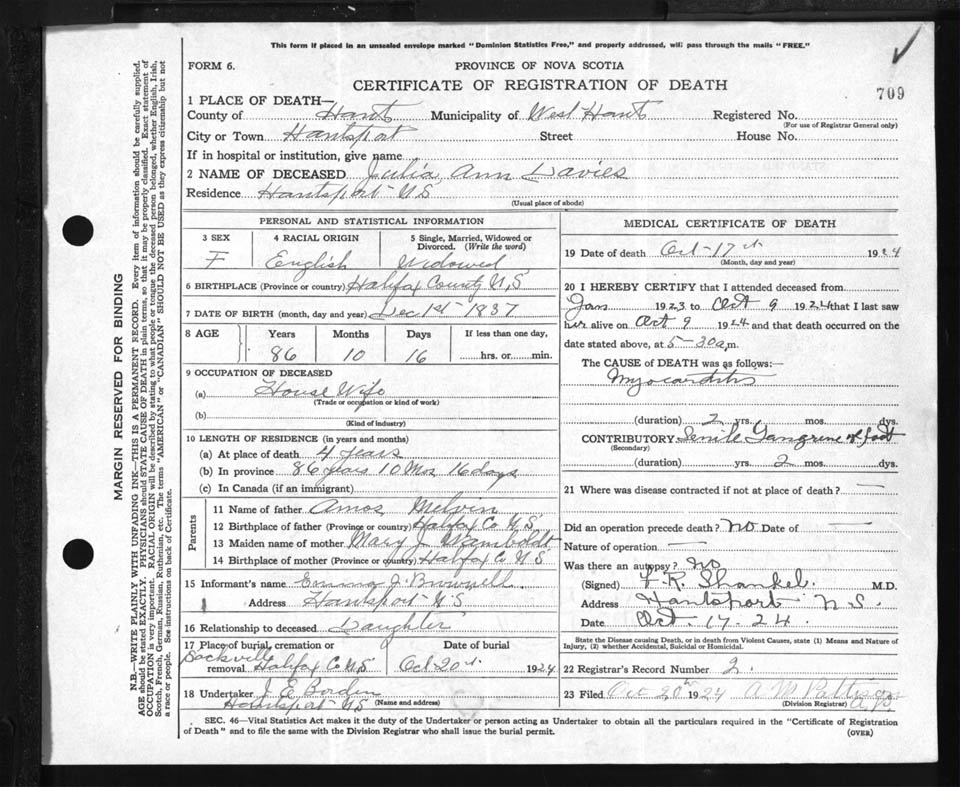 This form if placed in an unsealed envelope marked "Dominion Statistics Free," and properly addressed, will pass through the mails "FREE."
FORM 6.
PROVINCE OF NOVA SCOTIA
CERTIFICATE OF REGISTRATION OF DEATH
709
1 PLACE OF DEATH—
County of Hants Municipality of West Hants Registered No.
(For use of Registrar General only)
City or Town Hantsport Street House No.
If in hospital or institution, give name
2 NAME OF DECEASED Julia Ann Davies
Residence Hantsport N S
(Usual place of abode)
PERSONAL AND STATISTICAL INFORMATION
3 SEX 4 RACIAL ORIGIN 5 Single, Married, Widowed or Divorced. (Write the word)
F English Widowed
6 BIRTHPLACE (Province or country) Halifax County N,S
7 DATE OF BIRTH (month, day and year) Dec 1st 1837
8 AGE Years Months Days If less than one day,
86 10 16 hrs. or min.
9 OCCUPATION OF DECEASED
(a) House Wife
(Trade or occupation or kind of work)
(b)
(Kind of industry)
10 LENGTH OF RESIDENCE (in years and months)
(a) At place of death 4 years
(b) In province 86 years 10 Mos 16 days
(c) In Canada (if an immigrant)
Parents
11 Name of father Amos Melvin
12 Birthplace of father (Province or country) Halifax Co N S
13 Maiden name of mother Mary J Wamboldt
14 Birthplace of mother (Province or country) Halifax Co N S
15 Informant's name Emma J Brownell
Address Hantsport N S
16 Relationship to deceased Daughter
17 Place of burial, cremation or removal Date of burial
Sackville Halifax Co N S Oct 20th 1924
18 Undertaker J E Borden
Hantsport N S (Name and address)
MEDICAL CERTIFICATE OF DEATH
19 Date of death Oct-17th 1924
(Month, day and year)
20 I HEREBY CERTIFY that I attended deceased from
Jan 1923 to Oct 9 1924 that I last saw
her alive on Oct 9 1924 and that death occurred on the
date stated above, at 5-30 a.m.
The CAUSE OF DEATH was as follows:
Myocarditis
(duration) 2 yrs. mos. dys.
CONTRIBUTORY Senile Gangrene of foot
(Secondary)
(duration) yrs. 2 mos. dys.
21 Where was disease contracted if not at place of death? —
Did an operation precede death? No Date of —
Nature of operation —
Was there an autopsy? No
(Signed) F. R. Shankel. M.D.
Address Hantsport N S.
Date Oct. 17-24.
State the Disease causing Death, or in death from Violent Causes, state (1) Means and Nature of Injury, (2) whether Accidental, Suicidal or Homicidal.
22 Registrar's Record Number 2.
23 Filed Oct 20th 1924 A M
(Division Registrar)
SEC. 46—Vital Statistics Act makes it the duty of the Undertaker or person acting as Undertaker to obtain all the particulars required in the "Certificate of Registration
of Death" and to file the same with the Division Registrar who shall issue the burial permit.
(OVER)
MARGIN RESERVED FOR BINDING
N.B.—WRITE PLAINLY WITH UNFADING INK—THIS IS A PERMANENT RECORD. Every item of information should be carefully supplied.
AGE should be stated EXACTLY. PHYSICIANS should STATE CAUSE OF DEATH in plain terms, so that it may be properly classified. Exact statement of
OCCUPATION is very important. RACIAL ORIGIN will be described by stating to what people or tongue the deceased person belonged, whether English, Irish,
Scotch, French, German, Russian, Ruthenian, etc. The terms "AMERICAN" or "CANADIAN" SHOULD NOT BE USED as they express citizenship but not
a race or people. See instructions on back of Certificate.